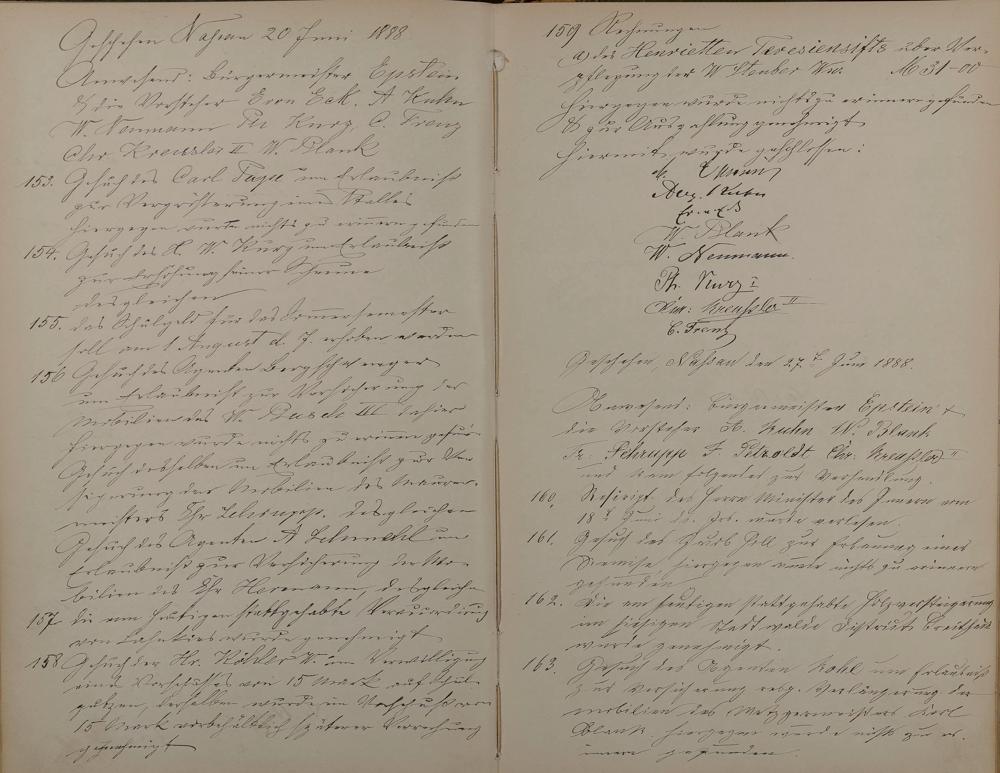 Geschehen Naßau 20 Juni 1888
Anwesend: Bürgermeister Epstein
& die Vorsteher Evon Eck. A Kuhn
W. Neumann Ph Kurz, C. Trenz
Chr. Kreussler II W. Blank
153. Gesuch des Carl um Erlaubniß
zur Vergrößerung eines Stalles
hiergegen wurde nichts zu erinnern gefunden
154. Gesuch des H. W. Kurz um Erlaubniß
zur Erhöhung seiner Scheune
desgleichen
155. das Schulgeld für das Sommersemester
soll am 1 August d. J. erhoben werden
156 Gesuch des Agenten
um Erlaubniß zur Versicherung der
Mobilien des W. Busch III dahier
hiergegen wurde nichts zu erinnern gefun-
Gesuch desselben um Erlaubniß zur Ver
sicherung der Mobilien des Maurer-
meisters Chr desgleichen
Gesuch des Agenten A um
Erlaubniß zur Versicherung der Mo-
bilien des Chr Heremann, desgleichen
157 die am heutigen stattgehabte
von wurde genehmigt
158 Gesuch der Hr. Köhler W. um Verwilligung
eines Vorschußes von 15 Mark auf
derselben wurde ein Vorschuß von
15 Mark vorbehältlich späterer Verrechnung
genehmigt
159 Rechnungen
a) des Henrietten Teresienstifts über Ver-
pflegung der W Stenber Wwe. M 31-00
hiergegen wurde nichts zu erinnern gefunden
& zur Auszahlung genehmigt
hiermit wurde geschlossen:
Aug. Kuhn
Ev. v. Eck
W Blank
W. Neumann.
Ph. Kurz I
Chr: Kreußler II
C. Trenz
Geschehen, Naßau den 27. Juni 1888.
Anwesend: Bürgermeister Epstein &
die Vorsteher A. Kuhn W. Blank
Fr. Schrupp F Petzoldt Chr: Kreußler II
und kam folgendes zur Verhandlung.
160. Rescript des Herrn Minister des Innern vom
18 Juni ds. Jrs. wurde verlesen.
161. Gesuch des zur Erbauung eines
Remise, hiergegen wurde nichts zu erinnern
gefunden
162. Die am heutigen stattgehabte Holzversteigerung
im hiesigen Stadtwalde Districts
wurde genehmigt.
163. Gesuch des Agenten Kohl um Erlaubniß
zur Versicherung resp. Verlängerung der
Mobilien des Metzgermeisters Karl
Blank. hiergegen wurde nichts zu er-
innern gefunden.